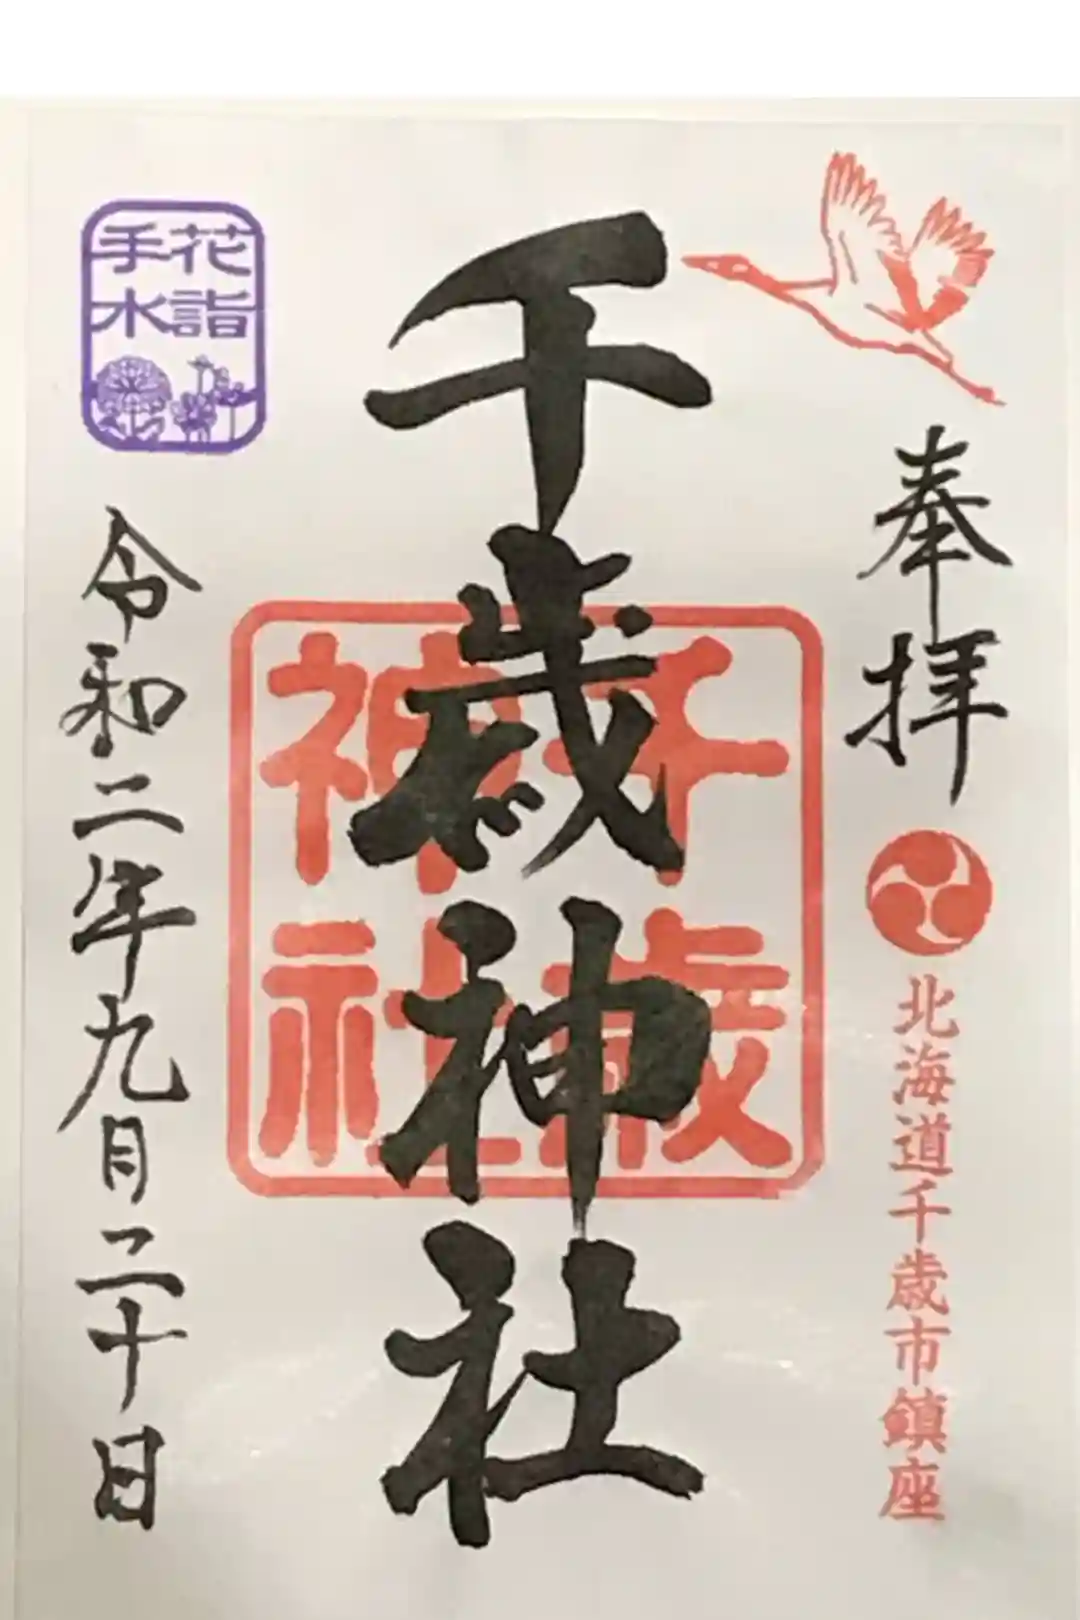 奉拝
北海道千歳市鎮座
千歳神社
千歳
神社
花詣
手水
令和二年九月二十日